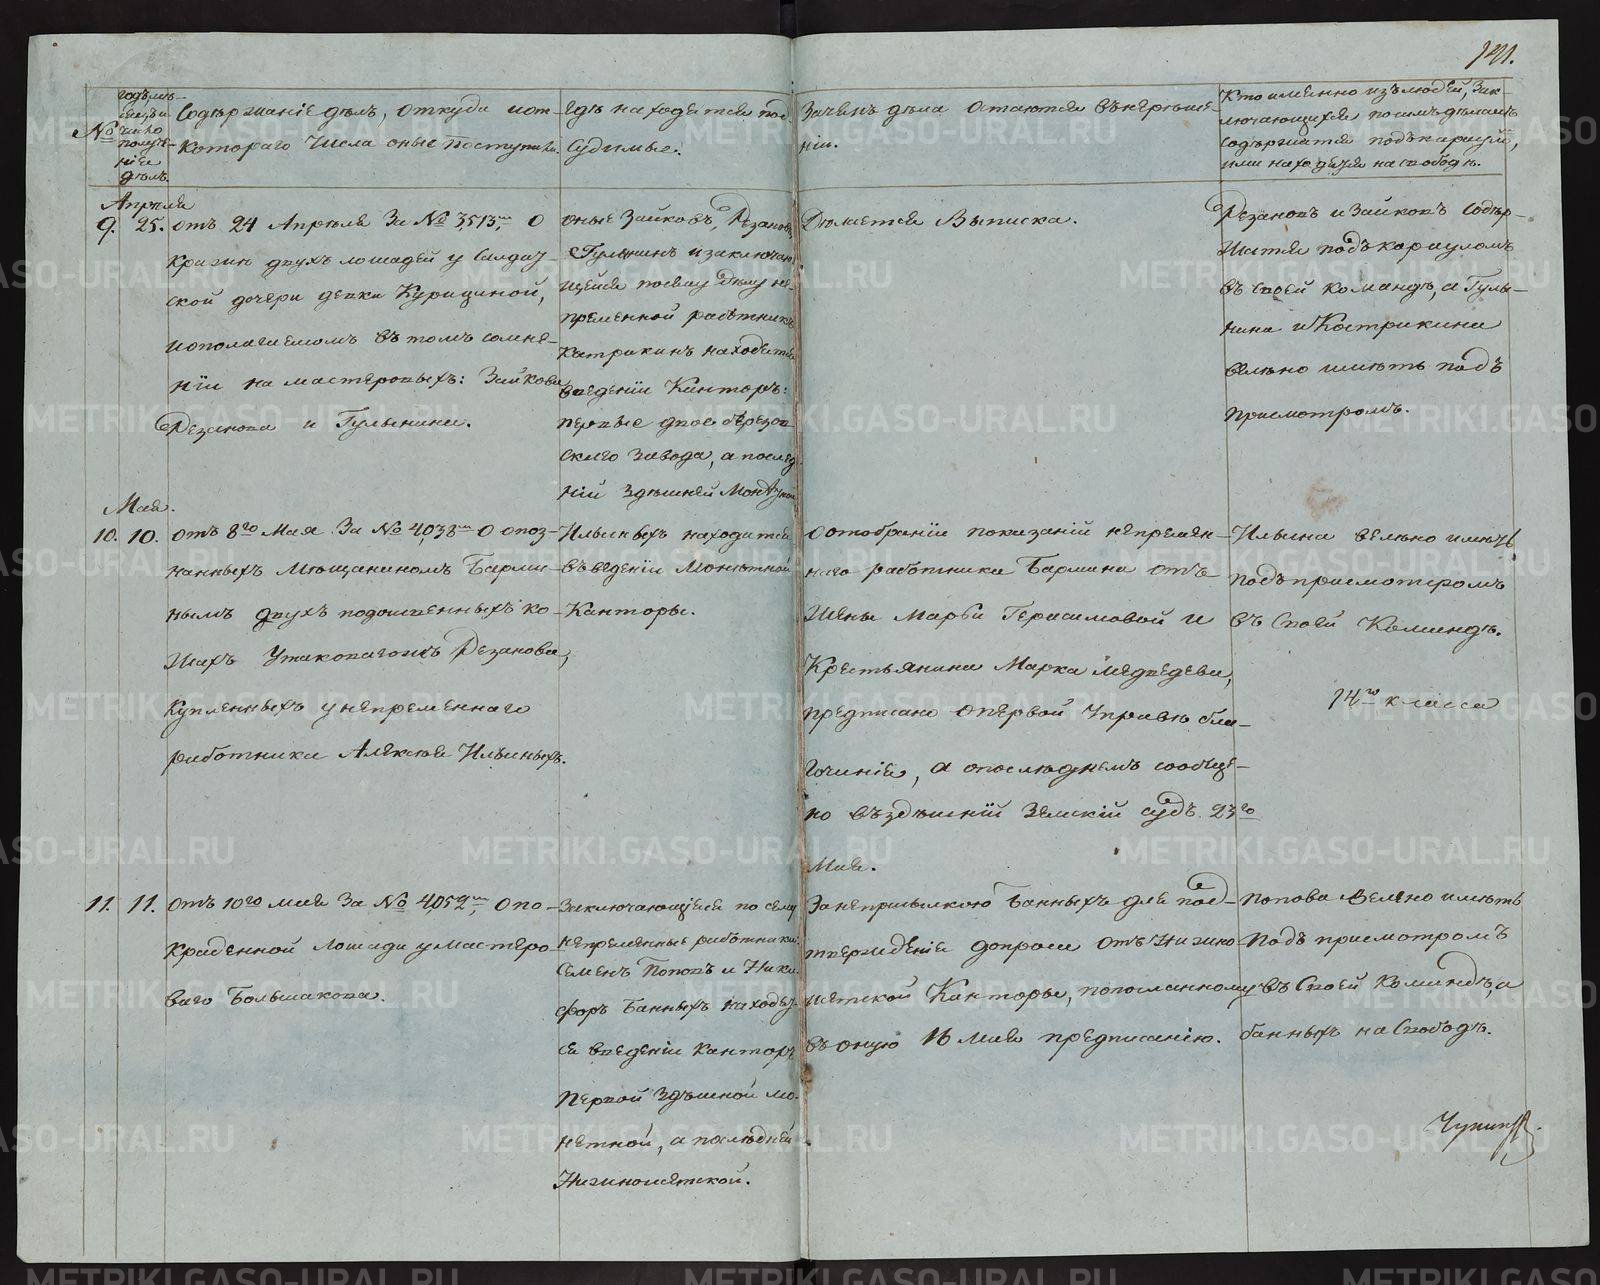 141.
№
годъ, мѣ-
сяцъ и
число
получе-
нія
дѣлъ.
Содержаніе дѣлъ, откуда и от
котораго числа оные поступили.
Гдѣ находятся под
судимые.
Зачемъ дѣла остаются въ нерѣше-
ніи.
Кто именно изъ людей, зак-
лючающихся по симъ дѣламъ
содержатся подъ карауломъ,
или находятся на свободѣ.
Апрѣля
9. 25. отъ 24 Апрѣля За № 3,513, О
кражи двухъ лошадей у Салдат-
ской дочери девки Курициной,
и полагаемомъ въ томъ сомне-
ніи на мастеровыхъ: Зайкова,
Резанова и Гульнина.
оные Зайковъ, Резановъ,
Гульнинъ и заключаю
щейся по сему дѣлу не-
пременной работникъ
Кастрикинъ находятся
введеніи Канторъ:
первые двое березов
скаго Завода, а послед
ній здешней Монетной
Дѣлается Выписка.
Резановъ и Зайковъ содер-
жатся подъ карауломъ
въ своей командѣ, а Гуль-
нина и Кострикина
велѣно имѣть подъ
присмотромъ.
Мая.
10. 10. отъ 8го Мая За № 4,038 О опоз-
нанныхъ Мѣщаниномъ Барми-
нымъ двухъ подошвенныхъ ко-
жахъ у маковагоихъ Резанова,
купленныхъ у непременнаго
работника Алексѣя Ильиныхъ.
Ильиныхъ находится
въ веденіи Монетной
Канторы.
О отобраніи показаній непремен-
наго работника Бармина отъ
жены Марьи Герасимовой и
Крестьянина Марка Медведева,
предписано о первой Управѣ бла-
гочинія, а о последнемъ сообще-
но въ здешній Земскій судъ 23го
Мая.
Ильина велѣно имѣть
подъ присмотромъ
въ своей Командѣ.
14го класса
11. 11. отъ 10го мая За № 4,052, О по-
краденной лошади у мастеро
ваго Большакова.
Заключающіеся по сему
непременные работники:
Семенъ Поповъ и Ники
форъ Банныхъ находят
ся введеніи Канторъ
первой здешной мо-
нетной, а последней
Нижноисетской.
За неприсылкою Банныхъ для под-
твержденія допроса отъ Нижно
исетской Канторы, по посланному
въ оную 16 Мая предписанію.
Попова велено имѣть
подъ присмотромъ
въ своей Командѣ, а
банныхъ на свободѣ.
Чупинъ
METRIKI.GASO-URAL.RU